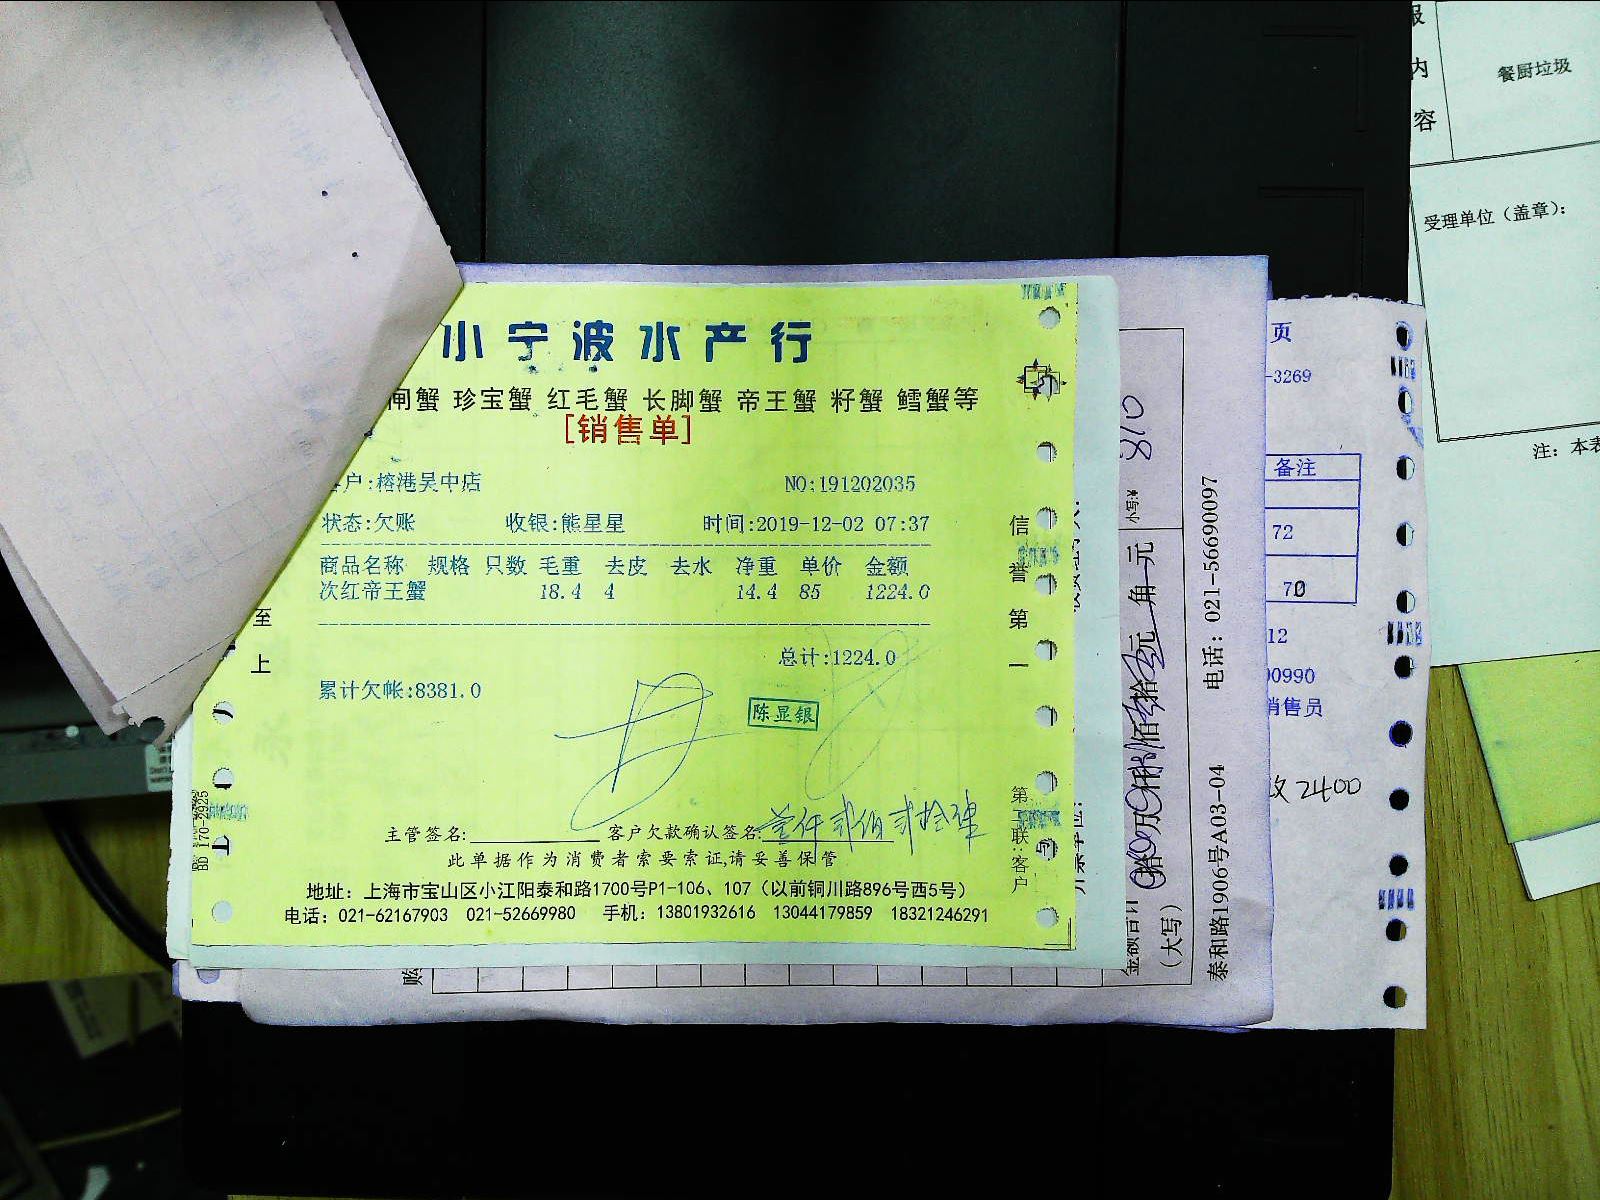 小宁波水产行
闸蟹 珍宝蟹 红毛蟹 长脚蟹 帝王蟹 籽蟹 鳕蟹等
[销售单]
户:榕港吴中店 NO:191202035
状态:欠账 收银:熊星星 时间:2019-12-02 07:37
商品名称 规格 只数 毛重 去皮 去水 净重 单价 金额
次红帝王蟹 18.4 4 14.4 85 1224.0
总计:1224.0
累计欠帐:8381.0
陈显银
主管签名: 客户欠款确认签名: 壹仟贰佰贰拾肆
此单据作为消费者索要索证,请妥善保管
地址：上海市宝山区小江阳泰和路1700号P1-106、107（以前铜川路896号西5号）
电话：021-62167903 021-52669980 手机：13801932616 13044179859 18321246291
至
上
信
誉
第
一
第二联:客户
BD 170-2925
小写:¥ 810
金额合计
(大写)
拾 万 仟 佰 拾 元 角 元
泰和路1906号A03-04 电话：021-56690097
页
-3269
备注
72
70
12
00990
销售员
2400
服
内
容
餐厨垃圾
受理单位（盖章）：
注：本表